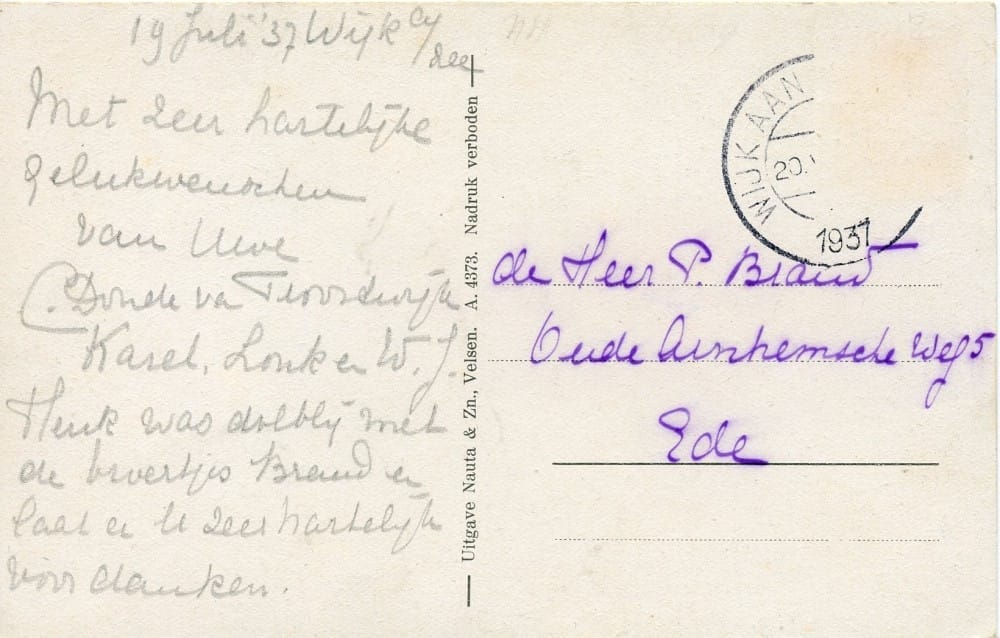 19 Juli '37 Wijk a/
Zee
Met zeer hartelijke
gelukwenschen
van Uwe
C. Donde van Troostwijk
Karel, Lonk en W. J.
Henk was dolblij met
de broertjes Brand en
laat er U zeer hartelijk
voor danken.
Uitgave Nauta & Zn., Velsen. A. 4373. Nadruk verboden
WIJK AAN
20.
1937
de Heer P. Brand
Oude Arnhemsche Weg 5
Ede